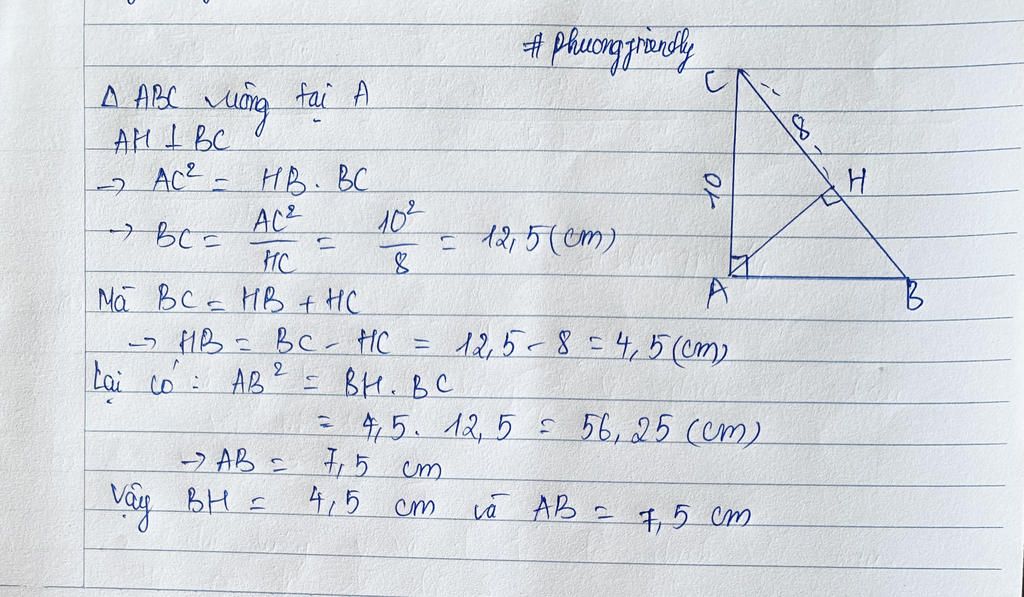 # phuongfriendly
Δ ABC vuông tại A
AH ⊥ BC
→ AC² = HB . BC
→ BC = AC²/HC = 10²/8 = 12,5 (cm)
Mà BC = HB + HC
→ HB = BC - HC = 12,5 - 8 = 4,5 (cm)
Lại có : AB² = BH . BC
= 4,5 . 12,5 = 56,25 (cm)
→ AB = 7,5 cm
Vậy BH = 4,5 cm và AB = 7,5 cm
C
8
H
10
A
B